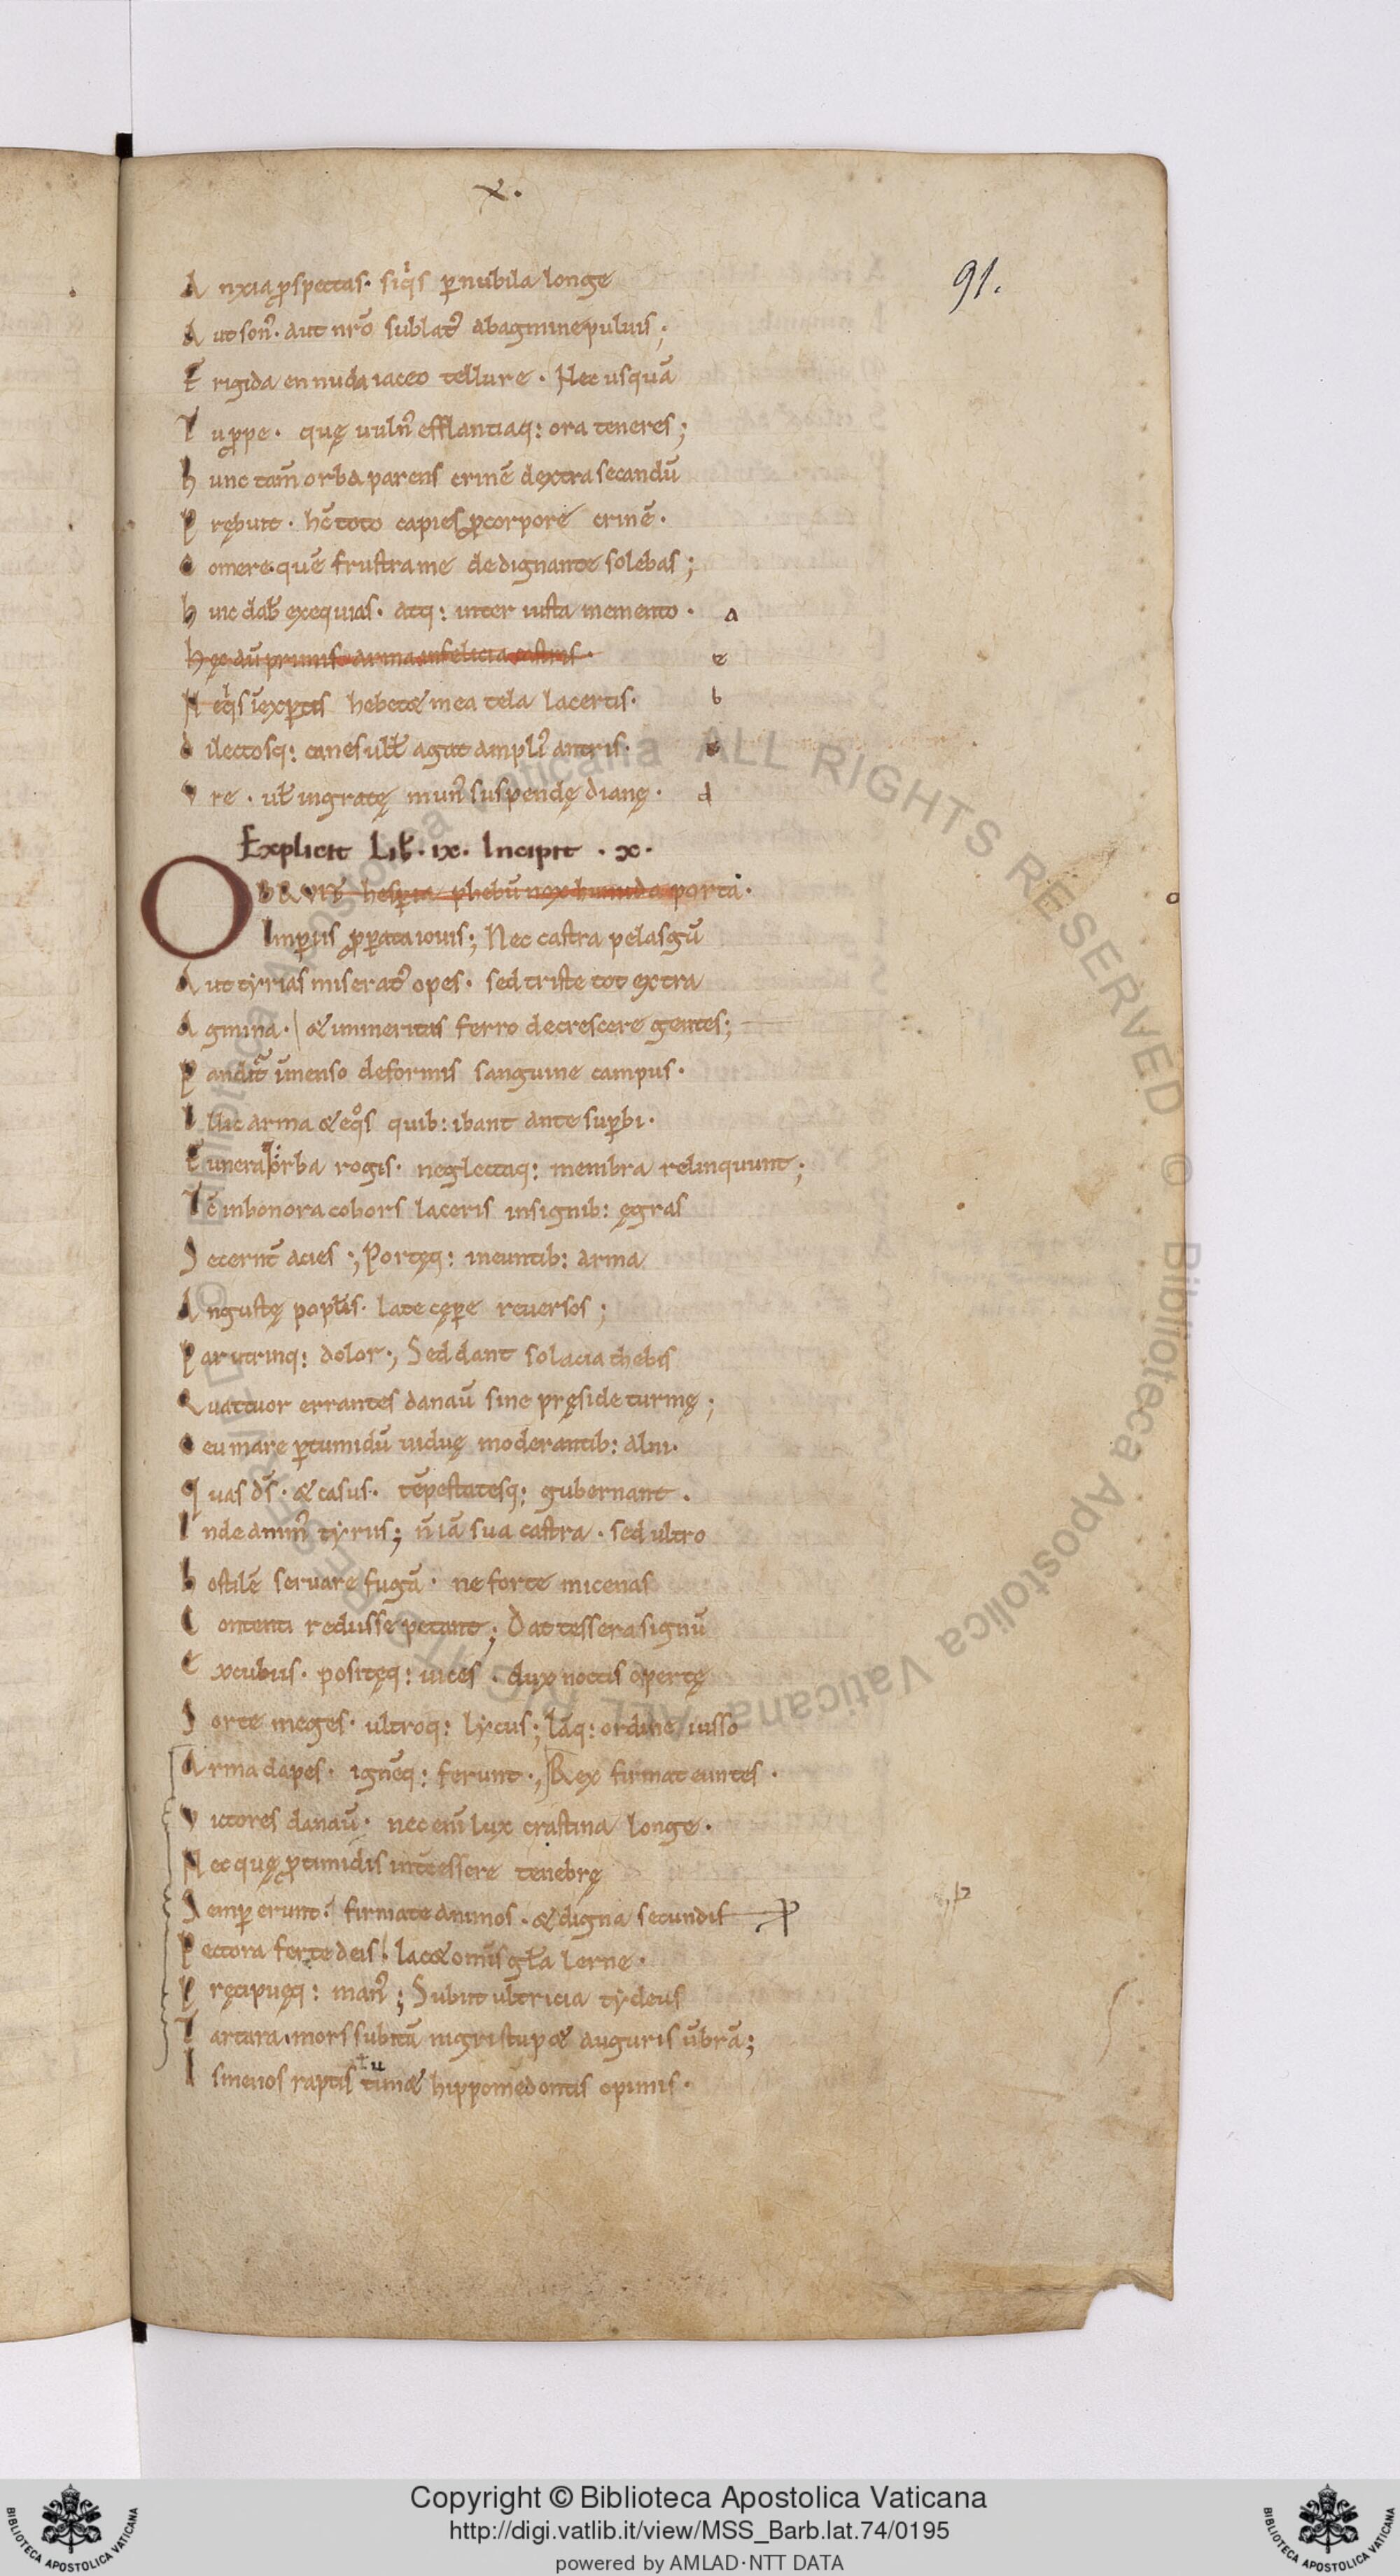 x.
91.
A nxia ꝓspectas. siqͥs ꝑ nubila longe
A ut sonꝰ. aut nrō sublatꝰ ab agmine puluis;
F rigida en nuda iaceo tellure. Nec usquā
T u ꝓpe. quę uultꝰ efflantiaq: ora teneres;
h unc tam̄ orba parens crinē dextra secandū
P rębuit. hc̄ toto capies ꝓ corpore crinē.
c omere quē frustra me dedignante solebas;
h uic dab̄ exequias. atq: inter iusta memento. a
hęc aū primis arma infelicia castris. e
N e qͥs inexꝑtis hebetet mea tela lacertis. b
d ilectosq: canes ull̄ agat ampliꝰ antris. c
V re. ul̄ ingratę munꝰ suspendę dianę. d
Explicit Lib̄. ix. Incipit . x.
OBRVIT hesꝑia phebū nox humida porta.
Imꝑiis ꝓꝑata iouis; Nec castra pelasgū
A ut tyrias miseratꝰ opes. sed triste tot extra
A gmina. & inmeritas ferro decrescere gentes;
P andit̄ īmenso deformis sanguine campus.
I llic arma & eqͦs quib: ibant ante suꝑbi.
F unera orba rogis. neglectaq: membra relinquunt;
T c̄ inhonora cohors laceris insignib: ęgras
S ecernt̄ acies; Portęq: ineuntib: arma
A ngustę popl̄is. late cęꝑe reuersos;
P ar utrinq: dolor; Sed dant solacia thebis
Q uattuor errantes danaū sine pręside turmę;
c eu mare ꝑ tumidū uiduę moderantib: alni.
q uas ds̄. & casus. tēpestatesq: gubernant.
I nde animꝰ tyrus; n̄ iā sua castra. sed ultro
h ostilē seruare fugā. ne forte micenas
C ontenti rediisse petant; Dat tessera signū
E xcubiis. positęq: uices. dux noctis opertę
S orte meges. ultroq: lycus; Iāq: ordine iusso
A rma dapes. ignēq: ferunt; Rex firmat euntes.
V ictores danaū. nec enī lux crastina longe.
N ec quę ꝓ timidis intercessere tenebrę
S emꝑ erunt. firmate animos. & digna secundis
P ectora ferte deis. Iacet omīs gl̄a lerne.
P ręcipuęq: manꝰ; Subiit ultricia tydeus
T artara. mors subitā nigri stupet auguris ūbrā;
I smenos raptis tumet hippomedontis opimis.
Copyright © Biblioteca Apostolica Vaticana
http://digi.vatlib.it/view/MSS_Barb.lat.74/0195
powered by AMLAD·NTT DATA